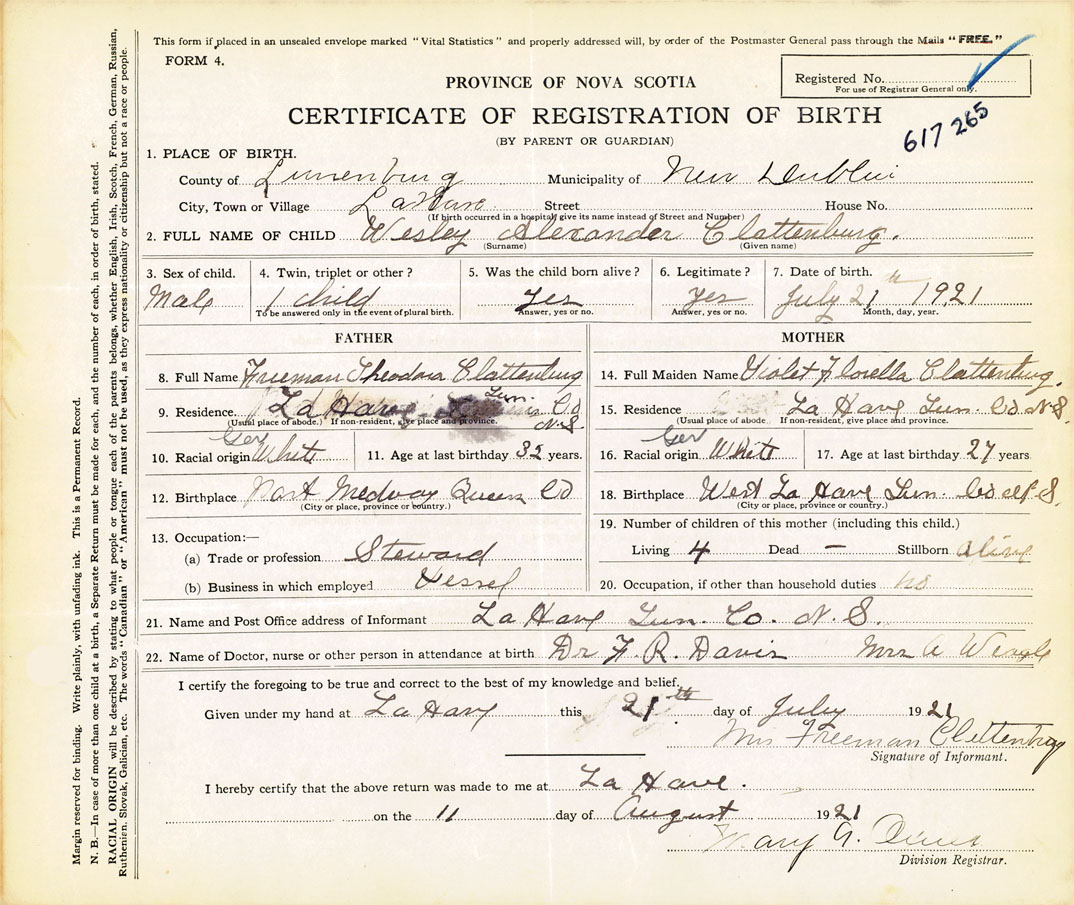 This form if placed in an unsealed envelope marked "Vital Statistics" and properly addressed will, by order of the Postmaster General pass through the Mails "FREE."
FORM 4.
Registered No.
For use of Registrar General only.
617 265
PROVINCE OF NOVA SCOTIA
CERTIFICATE OF REGISTRATION OF BIRTH
(BY PARENT OR GUARDIAN)
1. PLACE OF BIRTH.
County of Lunenburg Municipality of New Dublin
City, Town or Village LaHave Street House No.
(If birth occurred in a hospital, give its name instead of Street and Number)
2. FULL NAME OF CHILD Wesley Alexander Clattenburg.
(Surname) (Given name)
3. Sex of child. 4. Twin, triplet or other? 5. Was the child born alive? 6. Legitimate? 7. Date of birth.
Male 1 child Yes Yes July 21th 1921
To be answered only in the event of plural birth. Answer, yes or no. Answer, yes or no. Month, day, year.
FATHER
8. Full Name Freeman Theodora Clattenburg
9. Residence. La Have Lun. Co N.S
(Usual place of abode.) If non-resident, give place and province.
Ger
10. Racial origin White 11. Age at last birthday 32 years.
12. Birthplace Port Medway Queens Co
(City or place, province or country.)
13. Occupation:—
(a) Trade or profession Steward
(b) Business in which employed Vessel
MOTHER
14. Full Maiden Name Violet Florella Clattenburg.
15. Residence La Have Lun. Co N.S.
(Usual place of abode. If non-resident, give place and province.
Ger
16. Racial origin White 17. Age at last birthday 27 years
18. Birthplace West La Have Lun. Co N.S.
(City or place, province or country.)
19. Number of children of this mother (including this child.)
Living 4 Dead – Stillborn alive
20. Occupation, if other than household duties no
21. Name and Post Office address of Informant La Have Lun. Co. N.S.
22. Name of Doctor, nurse or other person in attendance at birth Dr F. R. Davis Mrs A
I certify the foregoing to be true and correct to the best of my knowledge and belief.
Given under my hand at La Have this 21th day of July 1921
Mrs Freeman Clattenburg
Signature of Informant.
I hereby certify that the above return was made to me at La Have.
on the 11 day of August 1921
Mary A.
Division Registrar.
Margin reserved for binding. Write plainly, with unfading ink. This is a Permanent Record.
N. B.—In case of more than one child at a birth, a Separate Return must be made for each, and the number of each, in order of birth, stated.
RACIAL ORIGIN will be described by stating to what people or tongue each of the parents belongs, whether English, Irish, Scotch, French, German, Russian,
Ruthenian, Slovak, Galician, etc. The words "Canadian" or "American" must not be used, as they express nationality or citizenship but not a race or people.